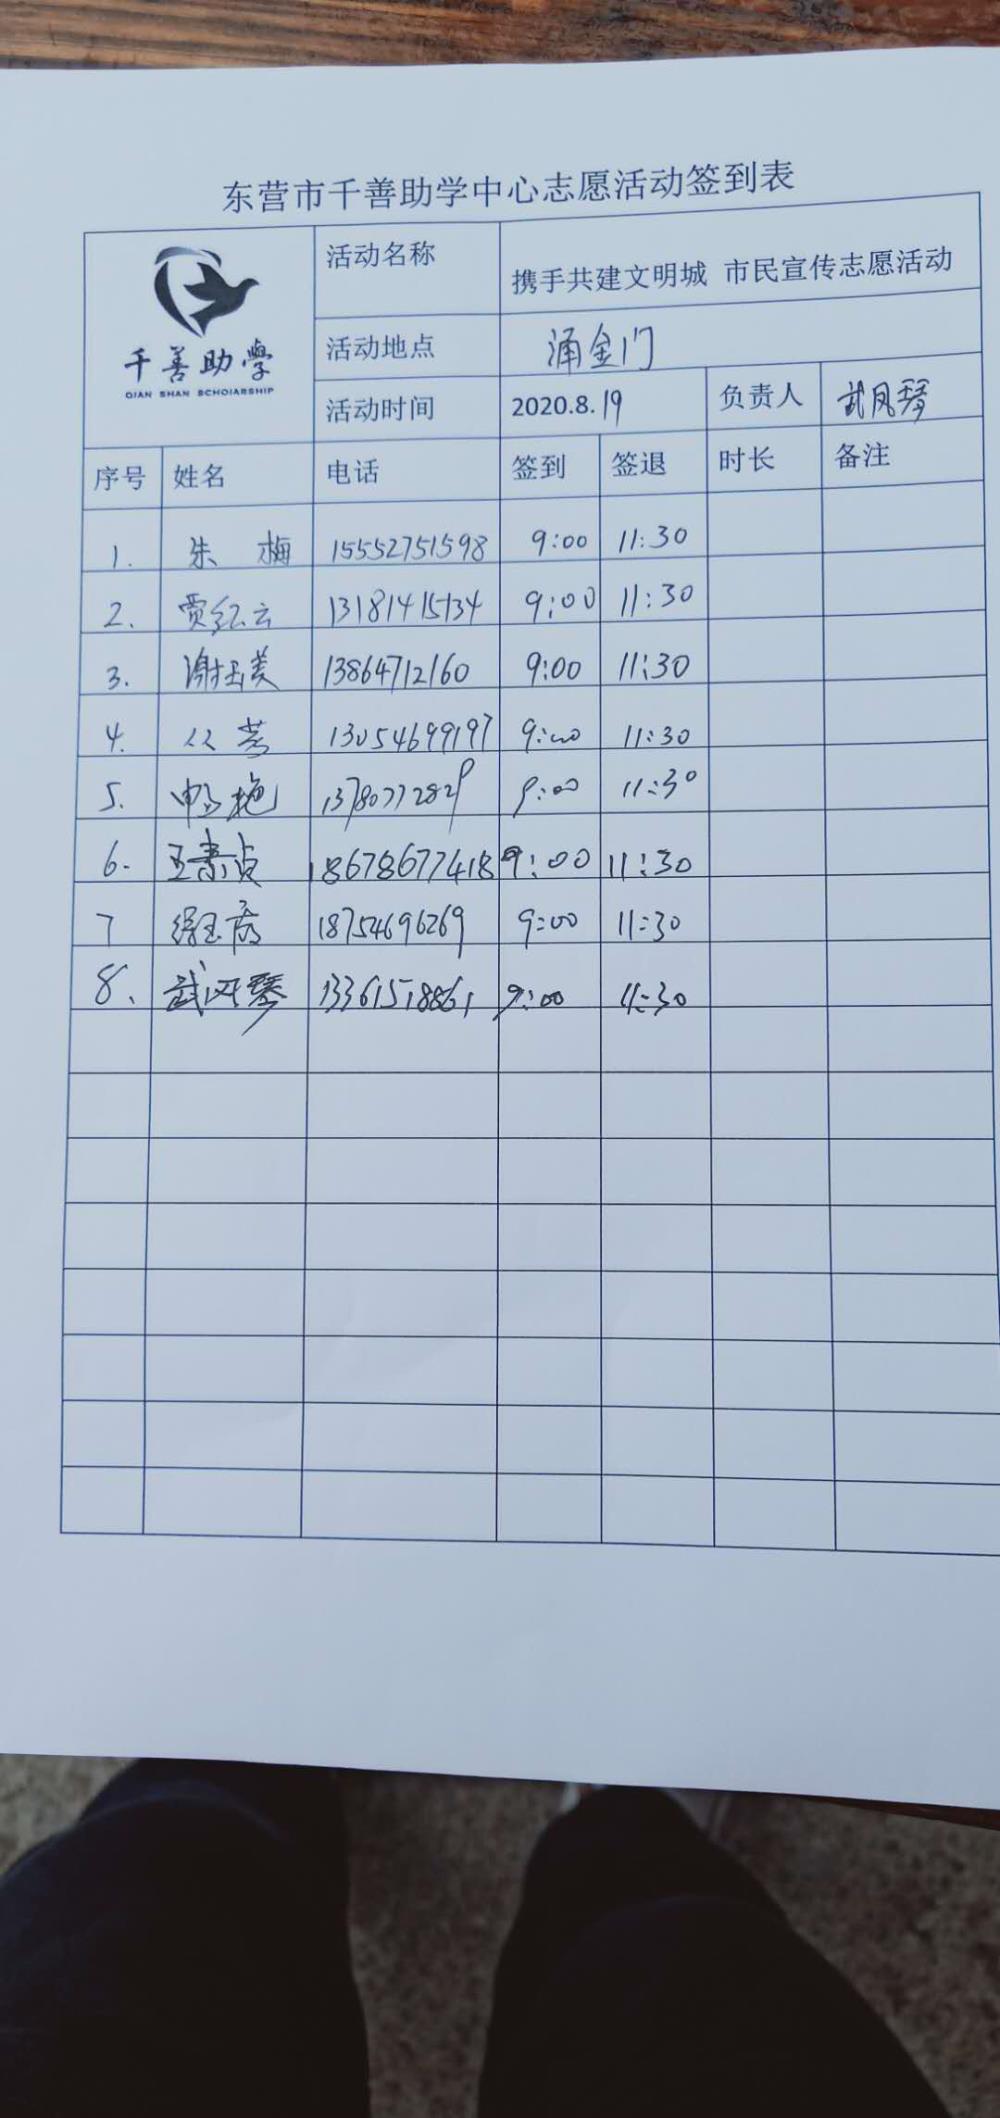 东营市千善助学中心志愿活动签到表
千善助學
QIAN SHAN SCHOIARSHIP
活动名称 携手共建文明城 市民宣传志愿活动
活动地点 涌金门
活动时间 2020.8.19 负责人 武凤琴
序号 姓名 电话 签到 签退 时长 备注
1. 朱梅 15552751598 9:00 11:30
2. 贾红云 13181415134 9:00 11:30
3. 谢玉美 13864712160 9:00 11:30
4. 13054699197 9:00 11:30
5. 13780772829 9:00 11:30
6. 王素贞 18678677418 9:00 11:30
7 18754696269 9:00 11:30
8. 武凤琴 13361518861 9:00 11:30